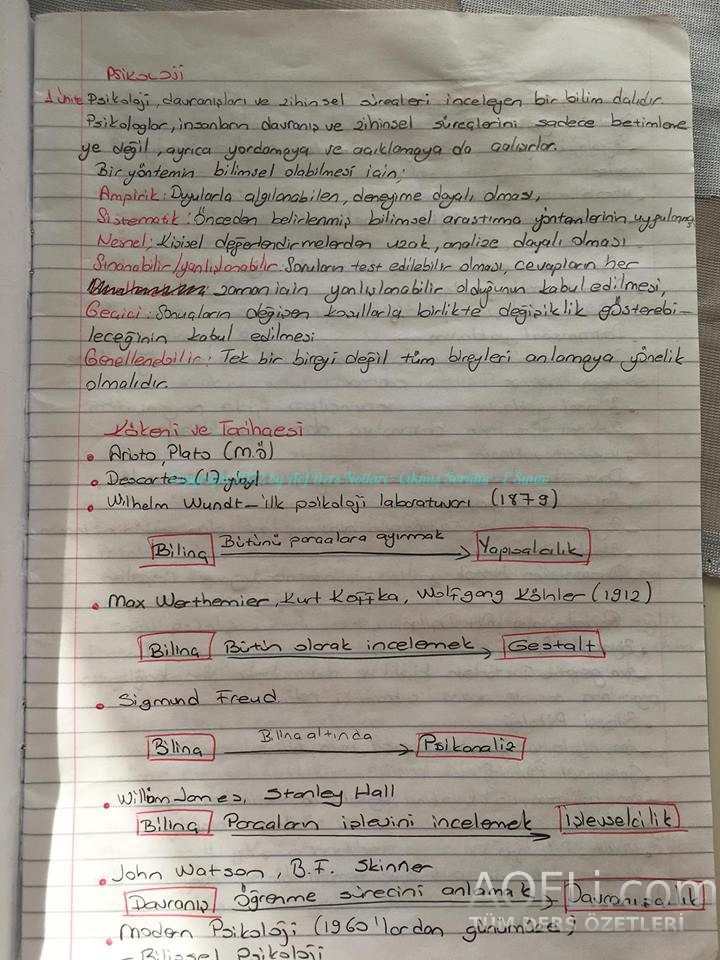 Psikoloji
1.Ünite Psikoloji, davranışları ve zihinsel süreçleri inceleyen bir bilim dalıdır.
Psikologlar, insanların davranış ve zihinsel süreçlerini sadece betimleme
ye değil, ayrıca yordamaya ve açıklamaya da çalışırlar.
Bir yöntemin bilimsel olabilmesi için;
Ampirik: Duyularla algılanabilen, deneyime dayalı olması,
Sistematik: Önceden belirlenmiş bilimsel araştırma yöntemlerinin
Nesnel; Kişisel değerlendirmelerden uzak, analize dayalı olması
Sınanabilir/yanlışlanabilir: Soruların test edilebilir olması, cevapların her
zaman için yanlışlanabilir olduğunun kabul edilmesi,
Geçici: Sonuçların değişen koşullarla birlikte değişiklik gösterebi-
leceğinin kabul edilmesi
Genellenebilir: Tek bir bireyi değil tüm bireyleri anlamaya yönelik
olmalıdır.
Kökeni ve Tarihçesi
• Aristo, Plato (M.Ö)
• Descartes (17.yy)
Ders Notları - Çıkmış Sorular -
• Wilhelm Wundt - ilk psikoloji laboratuvarı (1879)
Bilinç Bütünü parçalara ayırmak Yapısalcılık
• Max Werthemier, Kurt Koffka, Wolfgang Köhler (1912)
Bilinç Bütün olarak incelemek Gestalt
• Sigmund Freud
Bilinç Bilinçaltında Psikanaliz
• William James, Stanley Hall
Bilinç Parçaların işlevini incelemek İşlevselcilik
• John Watson, B.F. Skinner
Davranış Öğrenme sürecini anlamak Davranışçılık
AOFLi.com
TÜM DERS ÖZETLERİ
• Modern Psikoloji (1960'lardan günümüze)
- Bilişsel Psikoloji